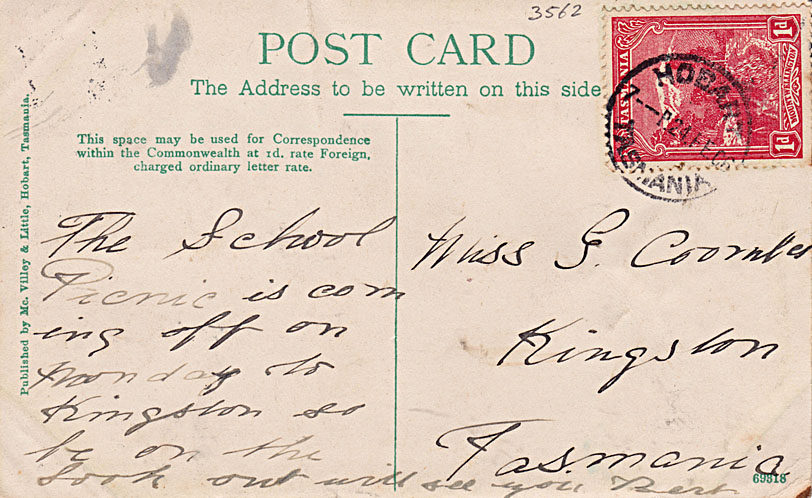 3562
POST CARD
The Address to be written on this side
This space may be used for Correspondence
within the Commonwealth at 1d. rate Foreign,
charged ordinary letter rate.
Published by Mc. Villey & Little, Hobart, Tasmania.
TASMANIA
1D
1D
HOBART
TASMANIA
The School
Picnic is com
ing off on
Monday to
Kingston so
be on the
look out will see you Bert
Miss G. Coombes
Kingston
Tasmania
69318